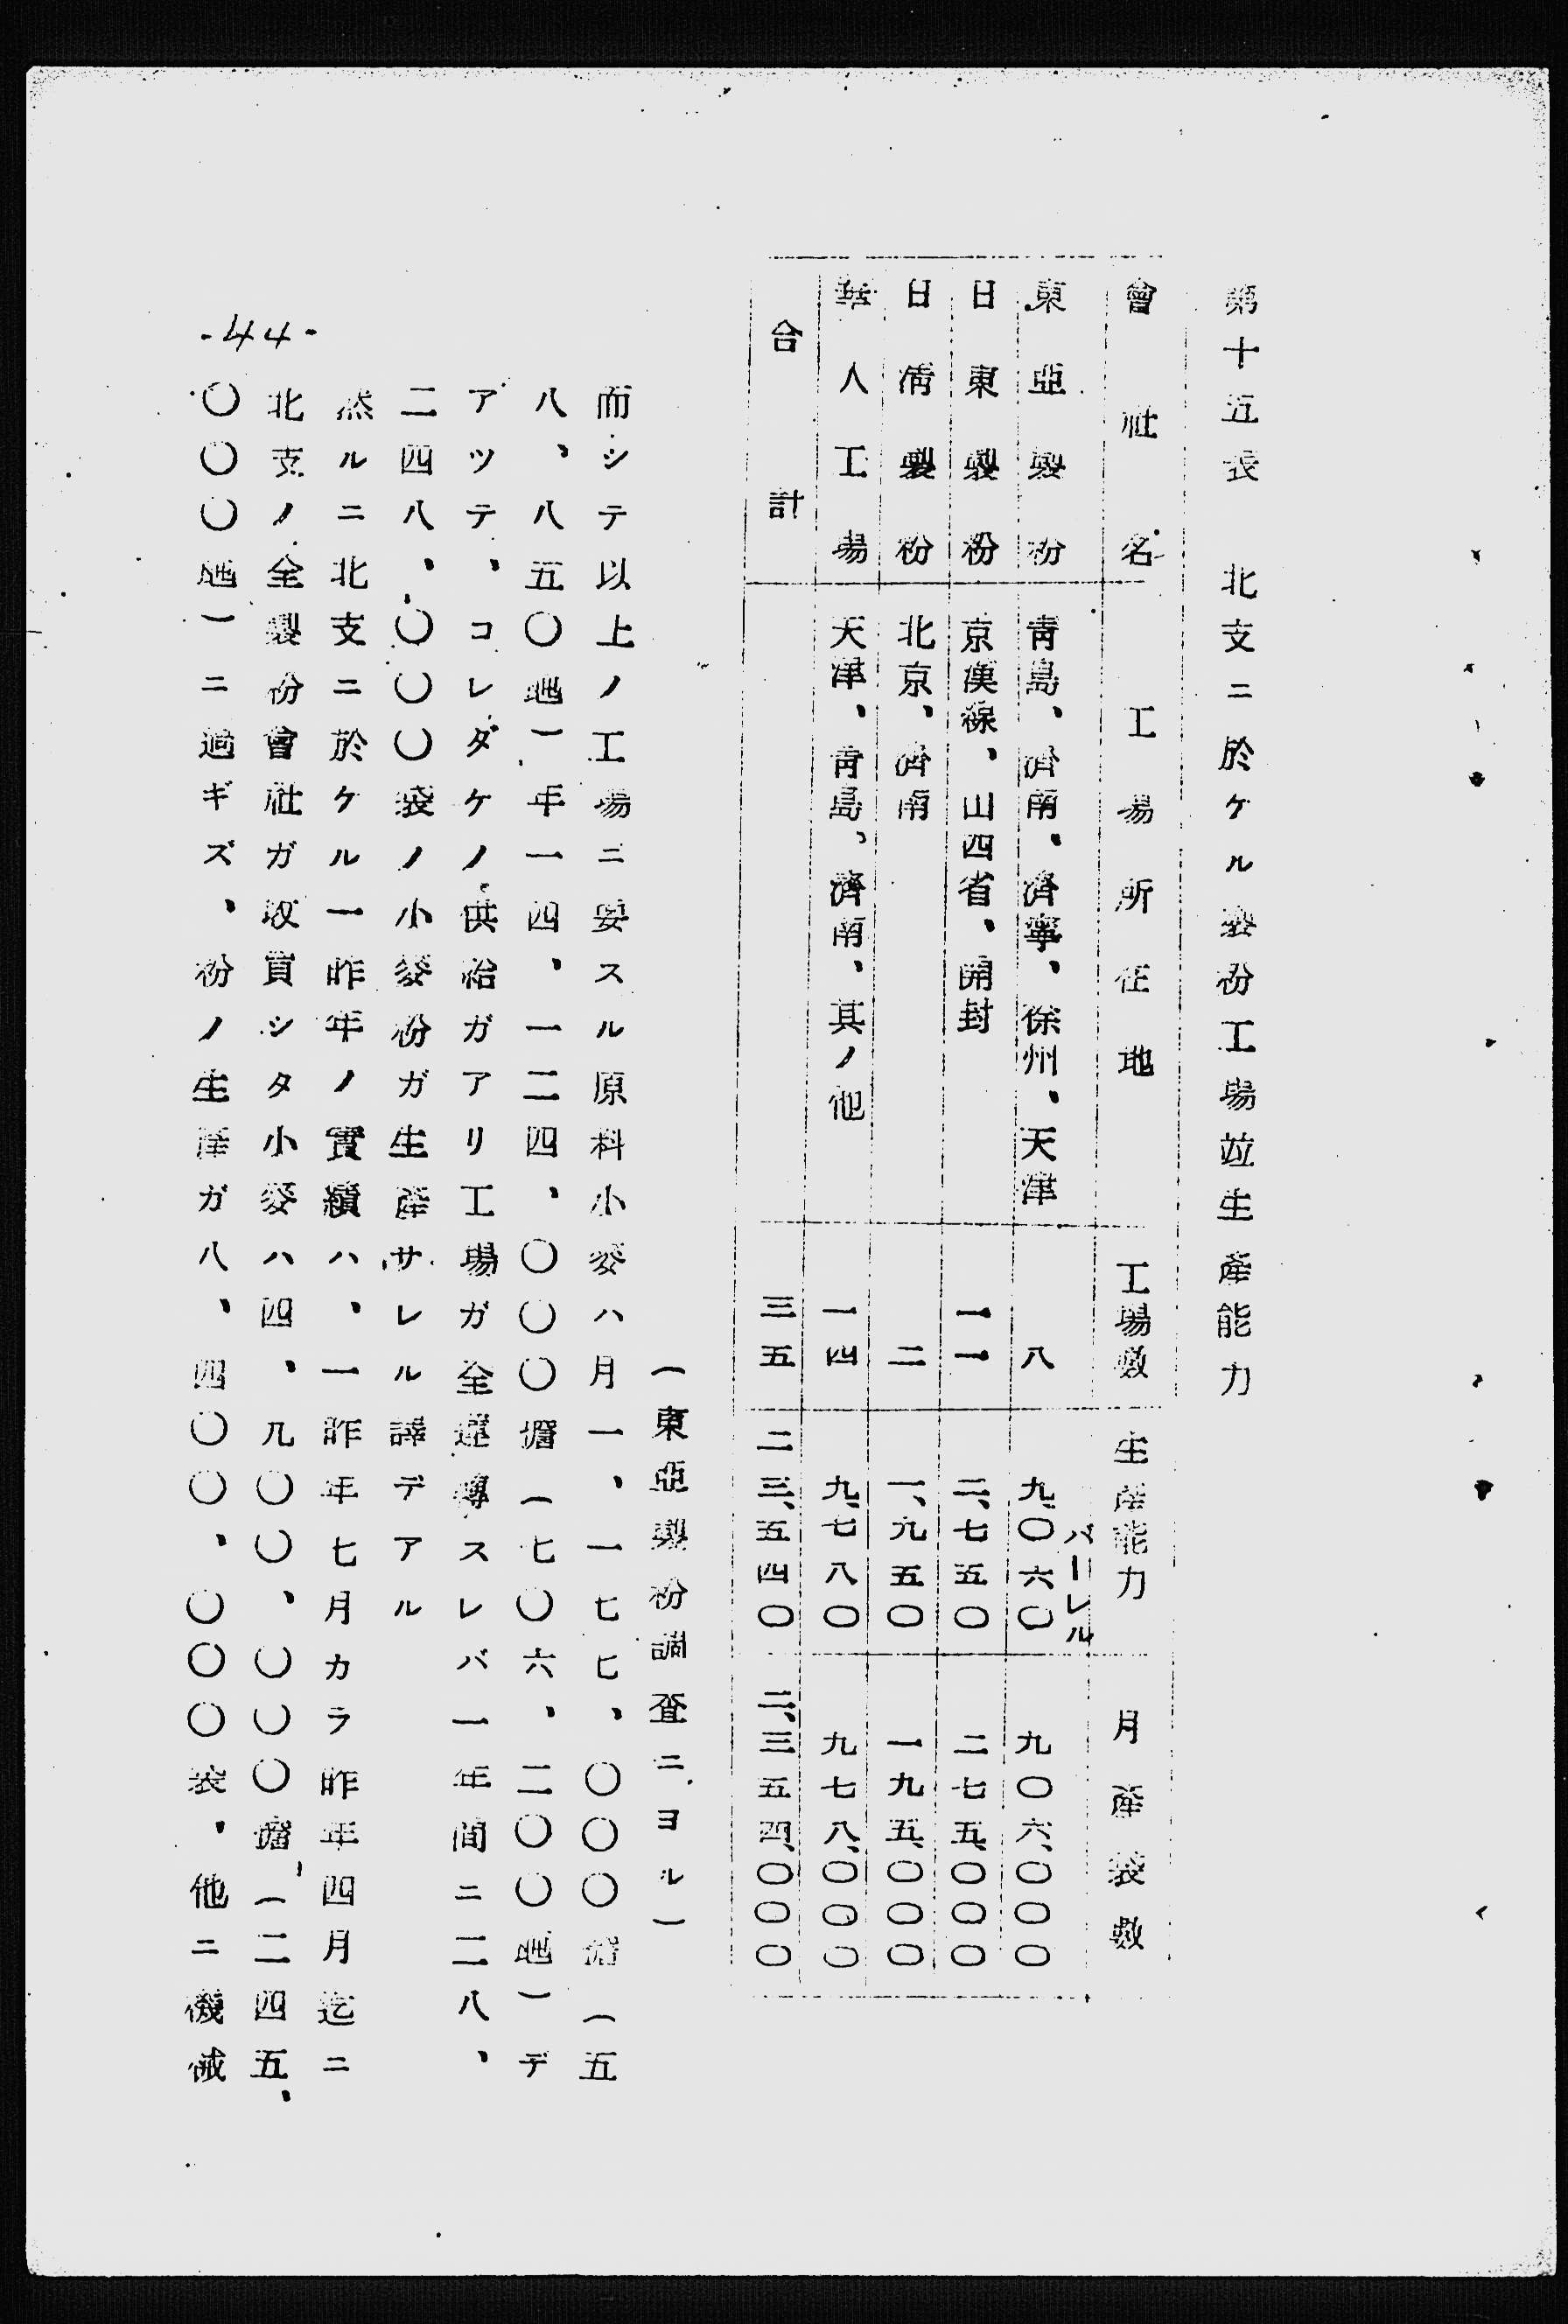 第十五表　北支ニ於ケル製粉工場並生產能力
會社名　工場所在地　工場數　生產能力　月產袋數
バーレル
東亞製粉　靑島、濟南、濟寧、徐州、天津　八　九、〇六〇　九〇六、〇〇〇
日東製粉　京漢線、山西省、開封　一一　二、七五〇　二七五、〇〇〇
日淸製粉　北京、濟南　二　一、九五〇　一九五、〇〇〇
華人工場　天津、靑島、濟南、其ノ他　一四　九、七八〇　九七八、〇〇〇
合計　三五　二三、五四〇　二、三五四、〇〇〇
（東亞製粉調査ニヨル）
而シテ以上ノ工場ニ要スル原料小麥ハ月一、一七七、〇〇〇擔（五
八、八五〇瓲）年一四、一二四、〇〇〇擔（七〇六、二〇〇瓲）デ
アツテ、コレダケノ供給ガアリ工場ガ全運轉スレバ一年間ニ二八、
二四八、〇〇〇袋ノ小麥粉ガ生產サレル譯デアル
然ルニ北支ニ於ケル一昨年ノ實績ハ、一昨年七月カラ昨年四月迄ニ
北支ノ全製粉會社ガ收買シタ小麥ハ四、九〇〇、〇〇〇擔（二四五、
〇〇〇瓲）ニ過ギズ、粉ノ生產ガ八、四〇〇、〇〇〇袋、他ニ機械
-44-